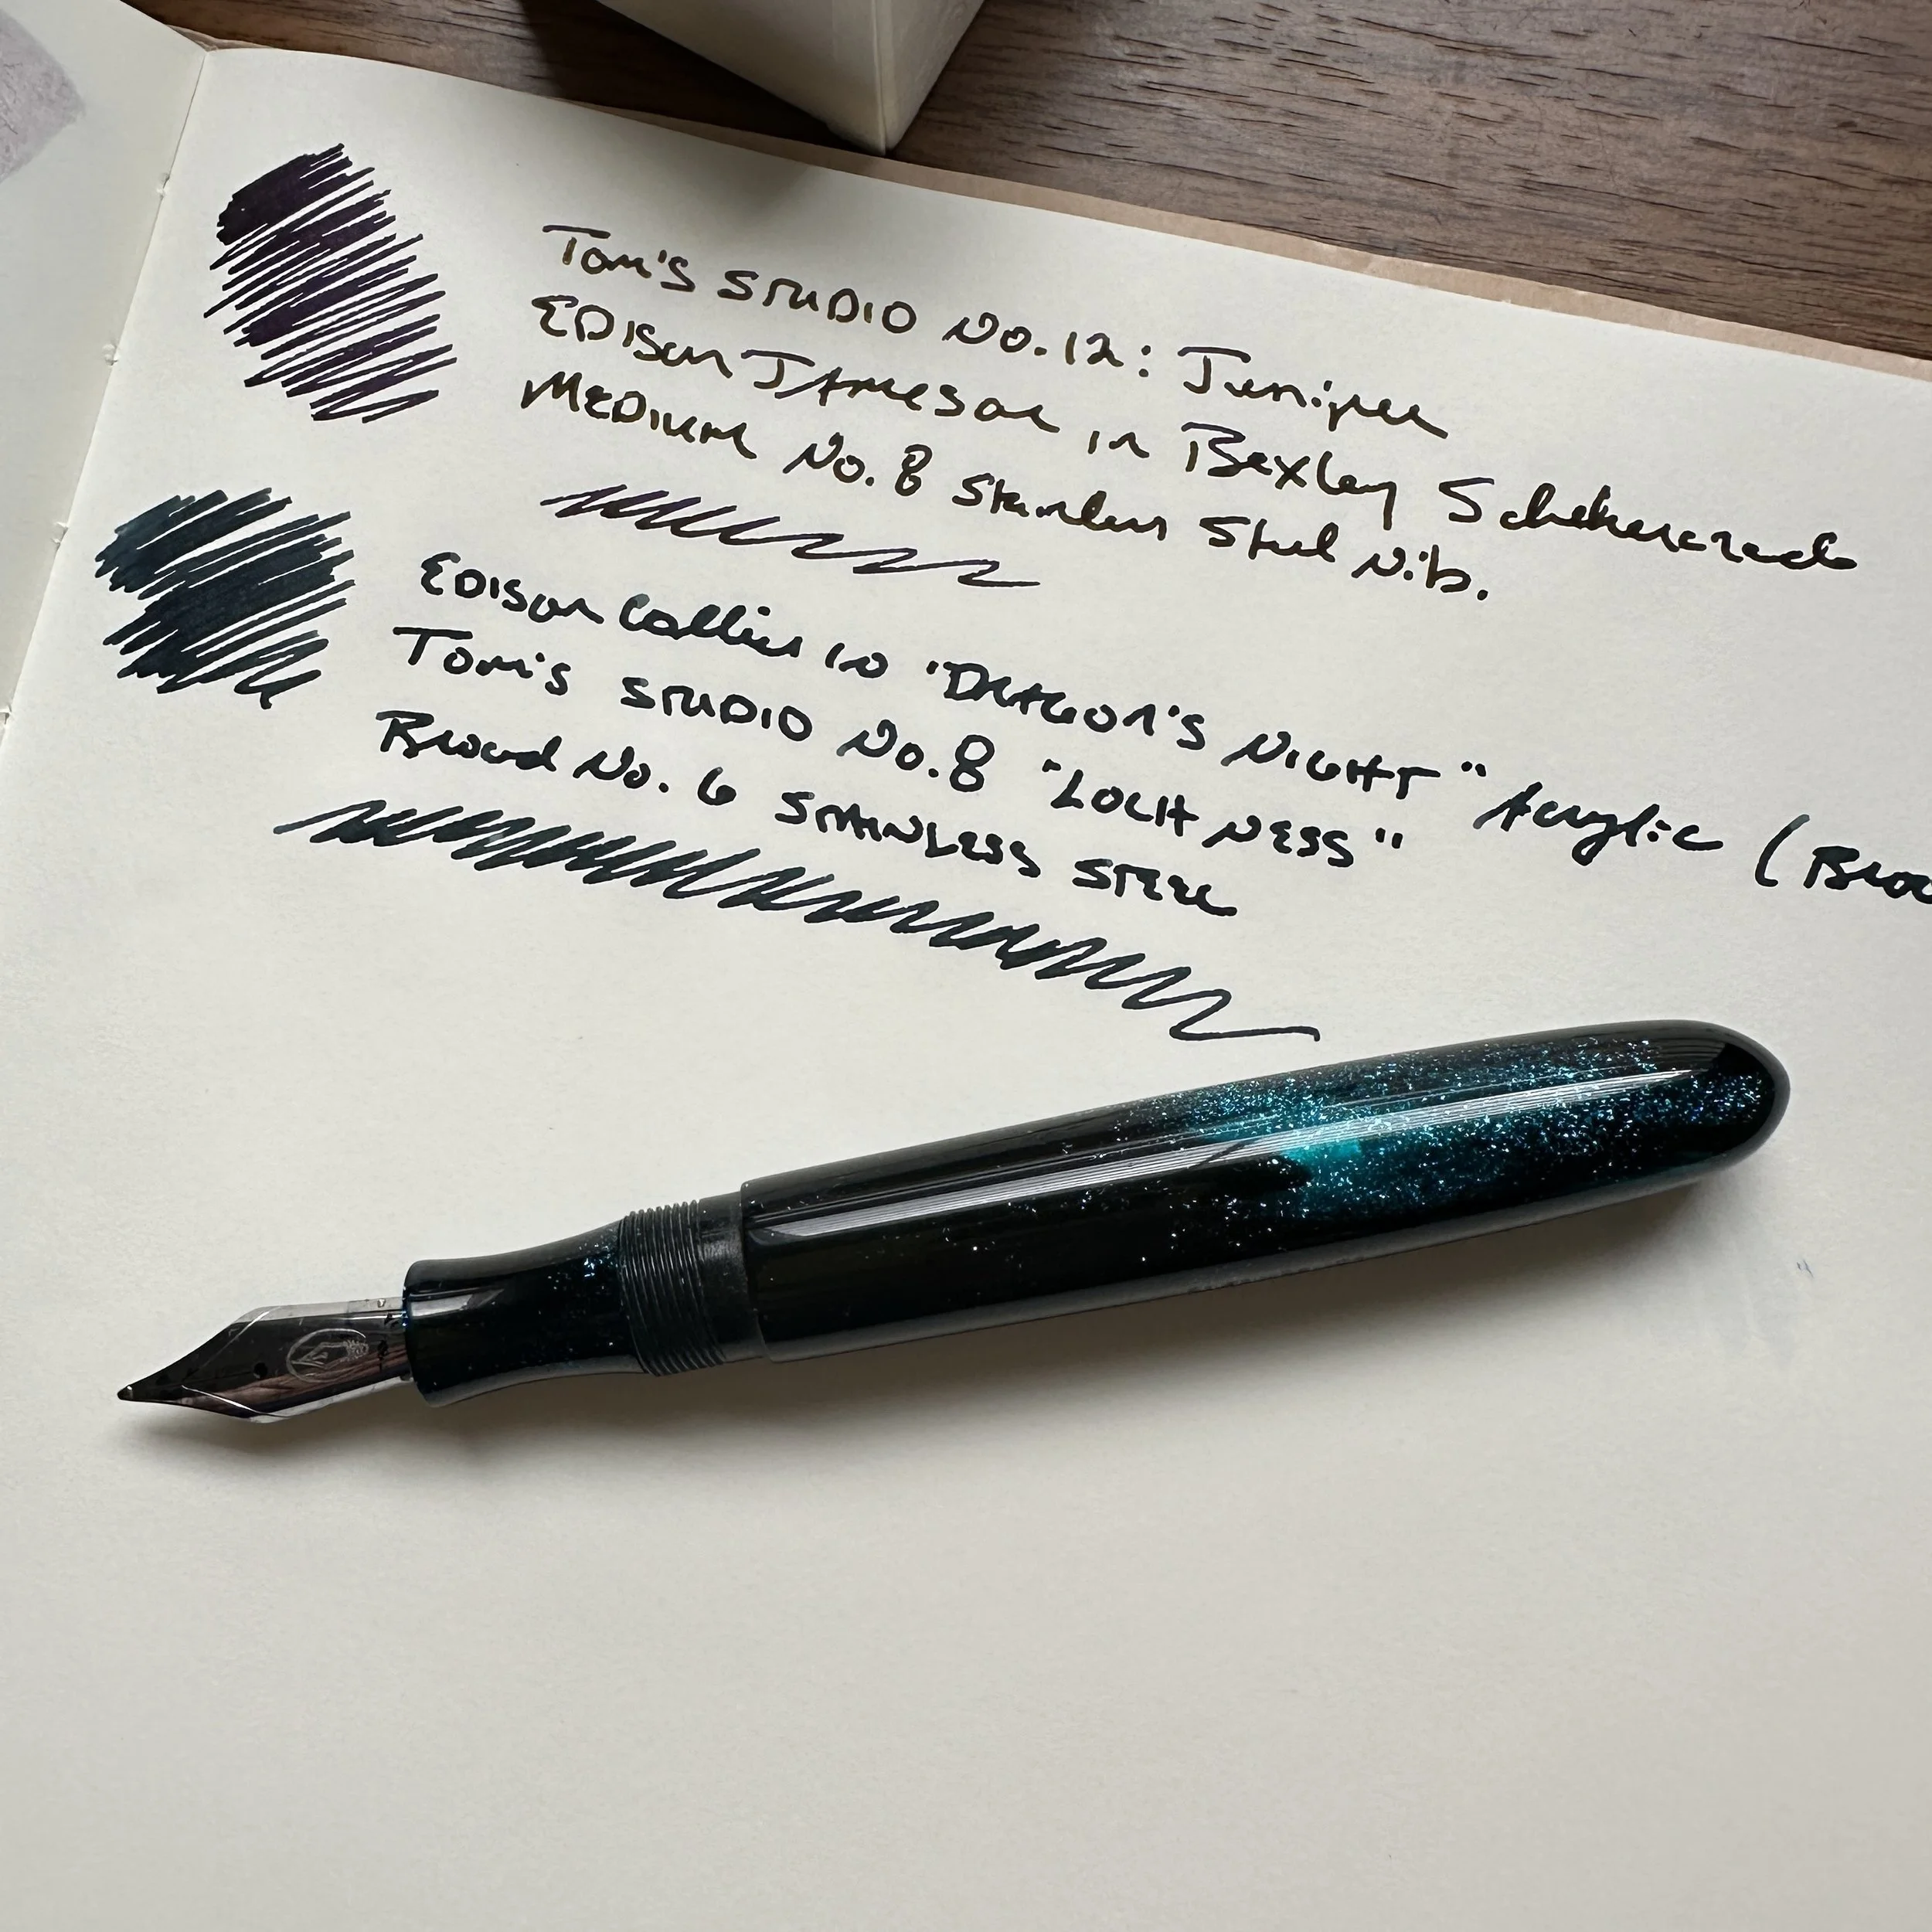 Tom's STUDIO No. 12: Juniper
EDISON JAMESON in Bexley Scheherazade
MEDIUM No. 8 Stainless Steel Nib.
EDISON Collier in "DRAGON'S NIGHT" Acrylic (Broa
Tom's STUDIO No. 8 "LOCH NESS"
Broad No. 6 STAINLESS STEEL